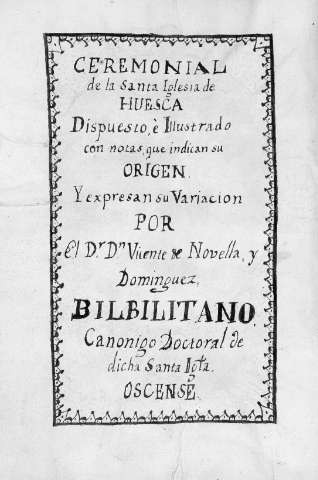 CEREMONIAL
de la Santa Iglesia de
HUESCA
Dispuesto, è Illustrado
con notas, que indican su
ORIGEN.
Y expresan su Variacion
POR
El D.r D.n Vicente de Novella, y
Dominguez,
BILBILITANO
Canonigo Doctoral de
dicha Santa Igta.
OSCENSE